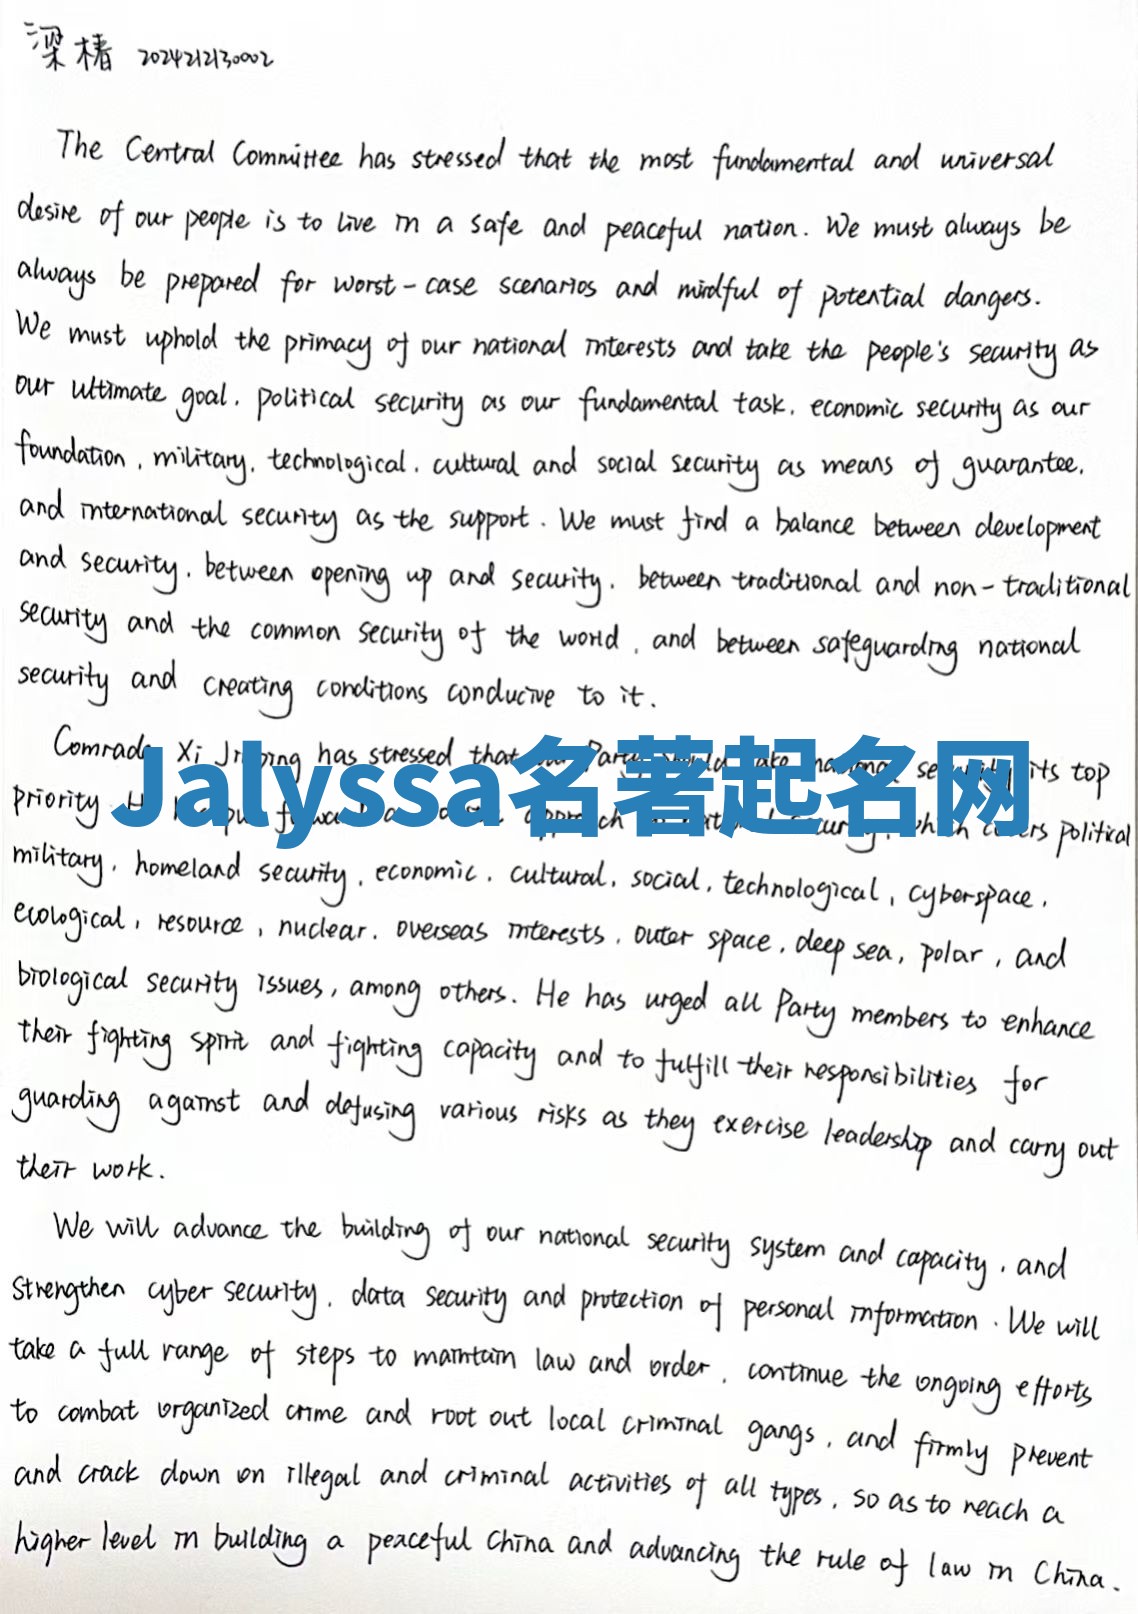 梁椿 2024212130002
The Central Committee has stressed that the most fundamental and universal
desire of our people is to live in a safe and peaceful nation. We must always be
always be prepared for worst-case scenarios and mindful of potential dangers.
We must uphold the primacy of our national interests and take the people's security as
our ultimate goal, political security as our fundamental task, economic security as our
foundation, military, technological, cultural and social security as means of guarantee,
and international security as the support. We must find a balance between development
and security, between opening up and security, between traditional and non-traditional
security and the common security of the world, and between safeguarding national
security and creating conditions conducive to it.
Comrade Xi Jinping has stressed that Party its top
Jalyssa名著起名网
priority political
military, homeland security, economic, cultural, social, technological, cyberspace,
ecological, resource, nuclear, overseas interests, outer space, deep sea, polar, and
biological security issues, among others. He has urged all Party members to enhance
their fighting spirit and fighting capacity and to fulfill their responsibilities for
guarding against and defusing various risks as they exercise leadership and carry out
their work.
We will advance the building of our national security system and capacity, and
strengthen cyber security, data security and protection of personal information. We will
take a full range of steps to maintain law and order, continue the ongoing efforts
to combat organized crime and root out local criminal gangs, and firmly prevent
and crack down on illegal and criminal activities of all types, so as to reach a
higher level in building a peaceful China and advancing the rule of law in China.